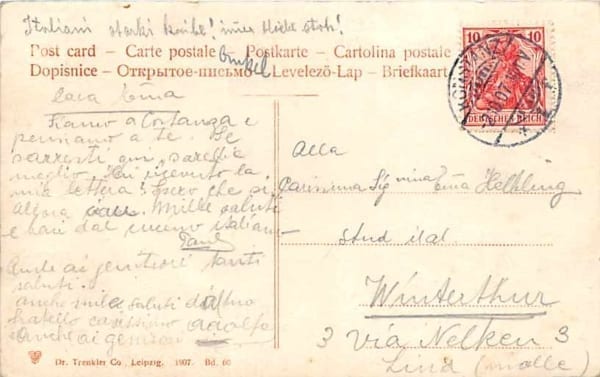 Italiani starki
Post card – Carte postale – Postkarte – Cartolina postale
Dopisnice – Открытое письмо – Levelező-Lap – Briefkaart
Cara Ema
Siamo a Costanza e
pensiamo a te. Se
saresti qui, sarebbe
meglio. Hai ricevuto la
mia lettera? Spero che si.
Allora ciau. Mille saluti
e baci dal
Paul
Anche ai genitori tanti
saluti.
anche mille saluti dallo
fratello carissimo Adolfo
anche ai genitori
10 10
DEUTSCHES REICH
KONSTANZ
Alla
Carissima Sig mina Ema Helbling
stud ital.
Winterthur
3 via Nelken 3
Lind (
Dr. Trenkler Co., Leipzig. 1907. Bd. 60